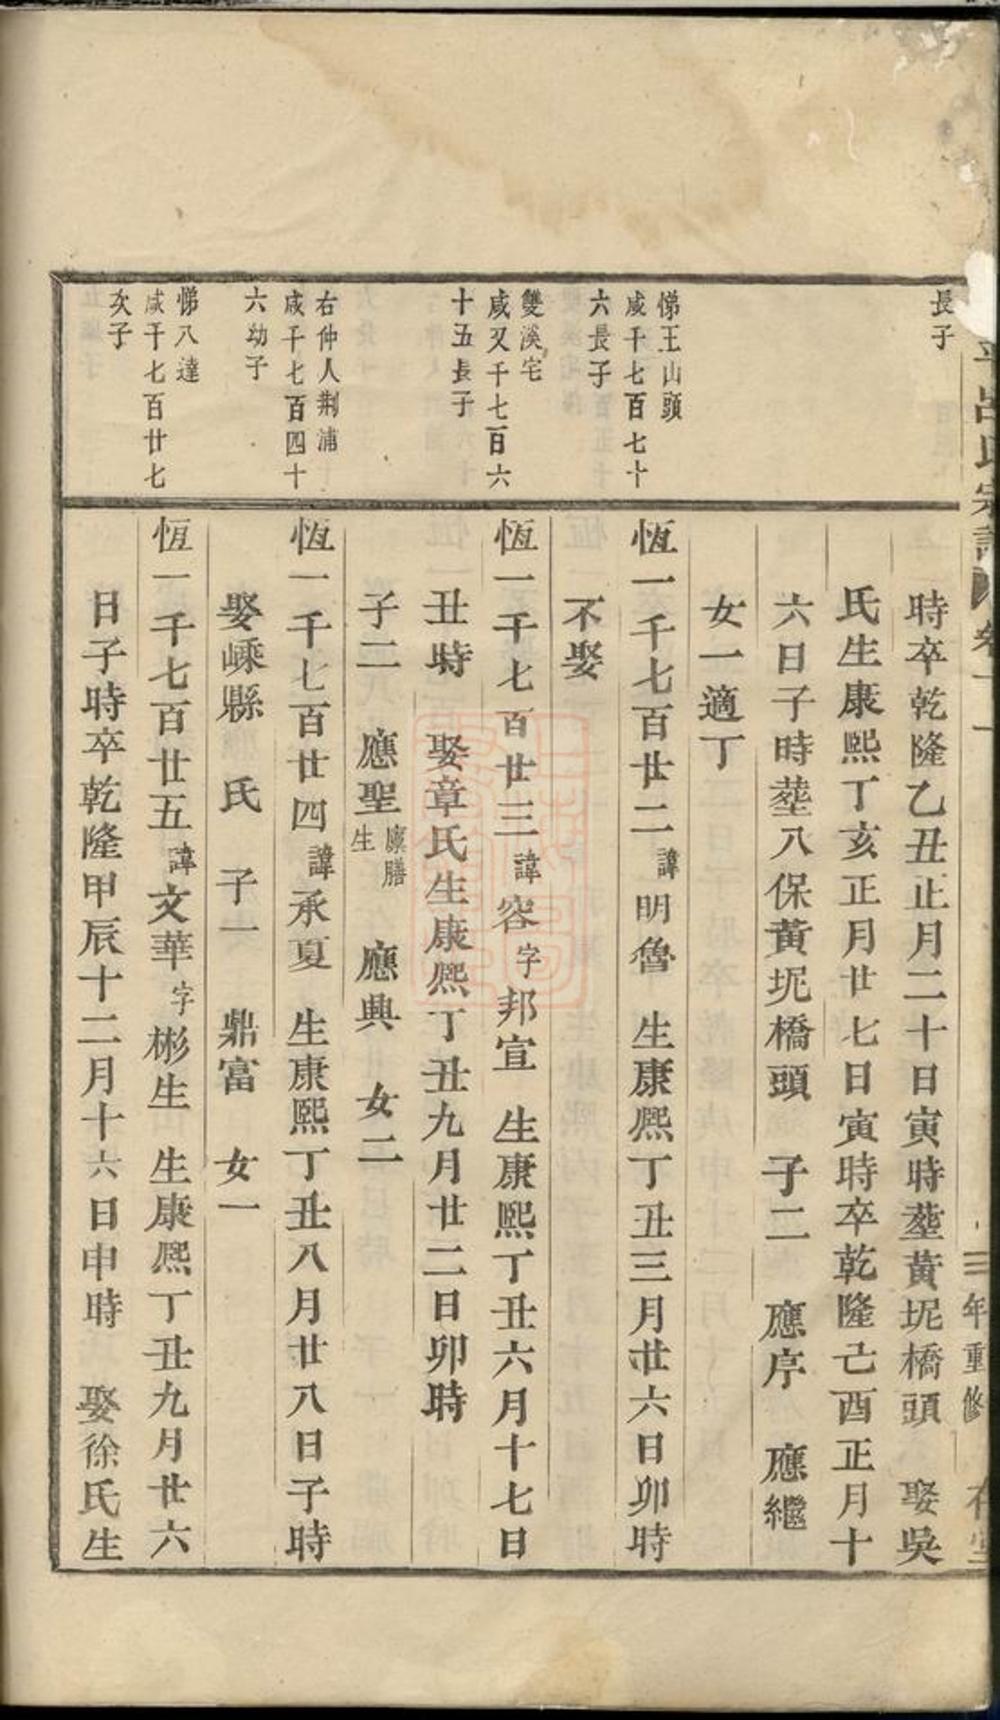 呂氏宗譜 卷十一
三年重修
長子
時卒乾隆乙丑正月二十日寅時塟黃坭橋頭 娶吳
氏生康熙丁亥正月廿七日寅時卒乾隆己酉正月十
六日子時塟八保黃坭橋頭 子二 應序 應繼
女一適丁
悌王山頭
咸千七百七十
六長子
恆一千七百廿二諱明魯 生康熙丁丑三月廿六日卯時
不娶
雙溪宅
咸又千七百六
十五長子
恆一千七百廿三諱容字邦宣 生康熙丁丑六月十七日
丑時 娶章氏生康熙丁丑九月廿二日卯時
子二 應聖廩膳生 應興 女二
右仲人荆浦
咸千七百四十
六幼子
恆一千七百廿四諱承夏 生康熙丁丑八月廿八日子時
娶嵊縣 氏 子一 鼎富 女一
悌八達
咸千七百廿七
次子
恆一千七百廿五諱文華字彬生 生康熙丁丑九月廿六
日子時卒乾隆甲辰十二月十六日申時 娶徐氏生